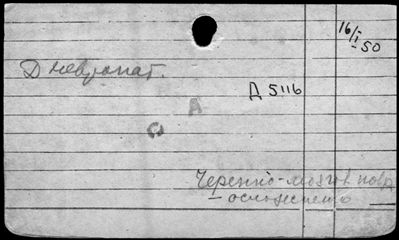 16/I 50
Д невропат.
Д 5116
А
Черепно-мозгов. повр.
— осложнения